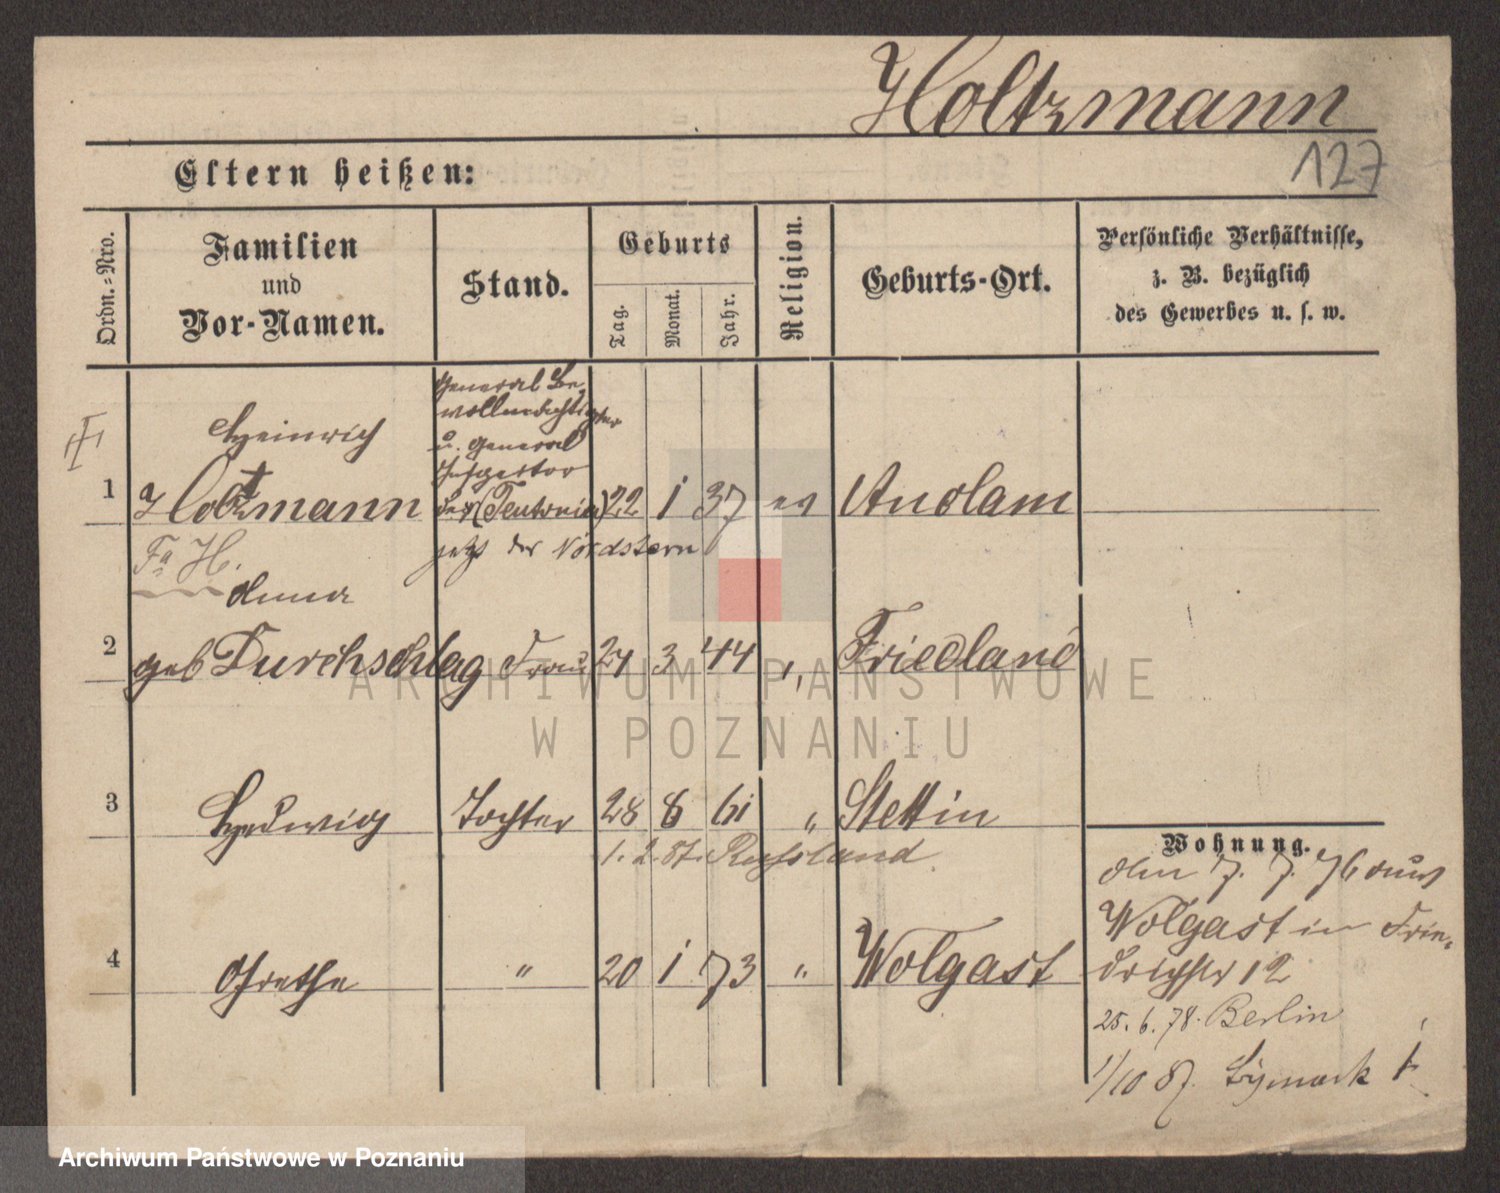 Holtzmann
127
Eltern heißen:
Ordn.-Nro.
Familien
und
Vor-Namen.
Stand.
Geburts
Tag.
Monat.
Jahr.
Religion.
Geburts-Ort.
Persönliche Verhältnisse,
z. B. bezüglich
des Gewerbes u. s. w.
General Be-
vollmächtigter
u. General
Inspector
Heinrich
1 Holtzmann der (Teutonia) 22 1 37 ev Anclam
jetzt der Nordstern
Fa H.
Anna
2 geb Durchschlag Frau 24 3 44 " Friedland
3 Hedwig Tochter 28 8 61 " Stettin
1. 2. 87. Russland
4 Grethe " 20 1 73 " Wolgast
Wohnung.
Am 7. 7. 76 aus
Wolgast in Frie-
drichstr 12
25. 6. 78. Berlin
1/10 87. Bismark
ARCHIWUM PAŃSTWOWE
W POZNANIU
Archiwum Państwowe w Poznaniu